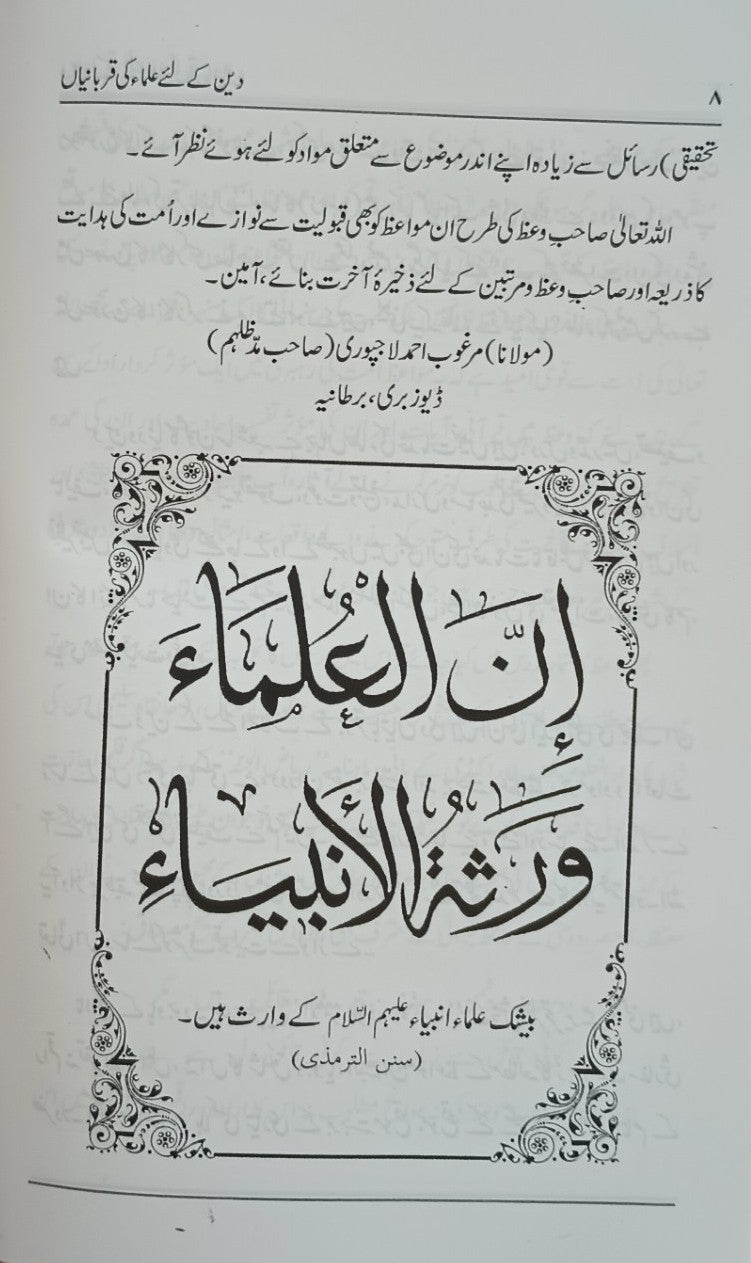 ۸
دین کے لئے علماء کی قربانیاں
تحقیقی) رسائل سے زیادہ اپنے اندر موضوع سے متعلق مواد کو لئے ہوئے نظر آئے۔
اللہ تعالیٰ صاحب وعظ کی طرح ان مواعظ کو بھی قبولیت سے نوازے اور اُمت کی ہدایت
کا ذریعہ اور صاحب وعظ و مرتبین کے لئے ذخیرۂ آخرت بنائے، آمین۔
(مولانا) مرغوب احمد لاجپوری (صاحب مدّظلہم)
ڈیوزبری، برطانیہ
إِنَّ الْعُلَمَاءَ
وَرَثَةُ الْأَنْبِيَاءِ
بیشک علماء انبیاء علیہم السّلام کے وارث ہیں۔
(سنن الترمذی)